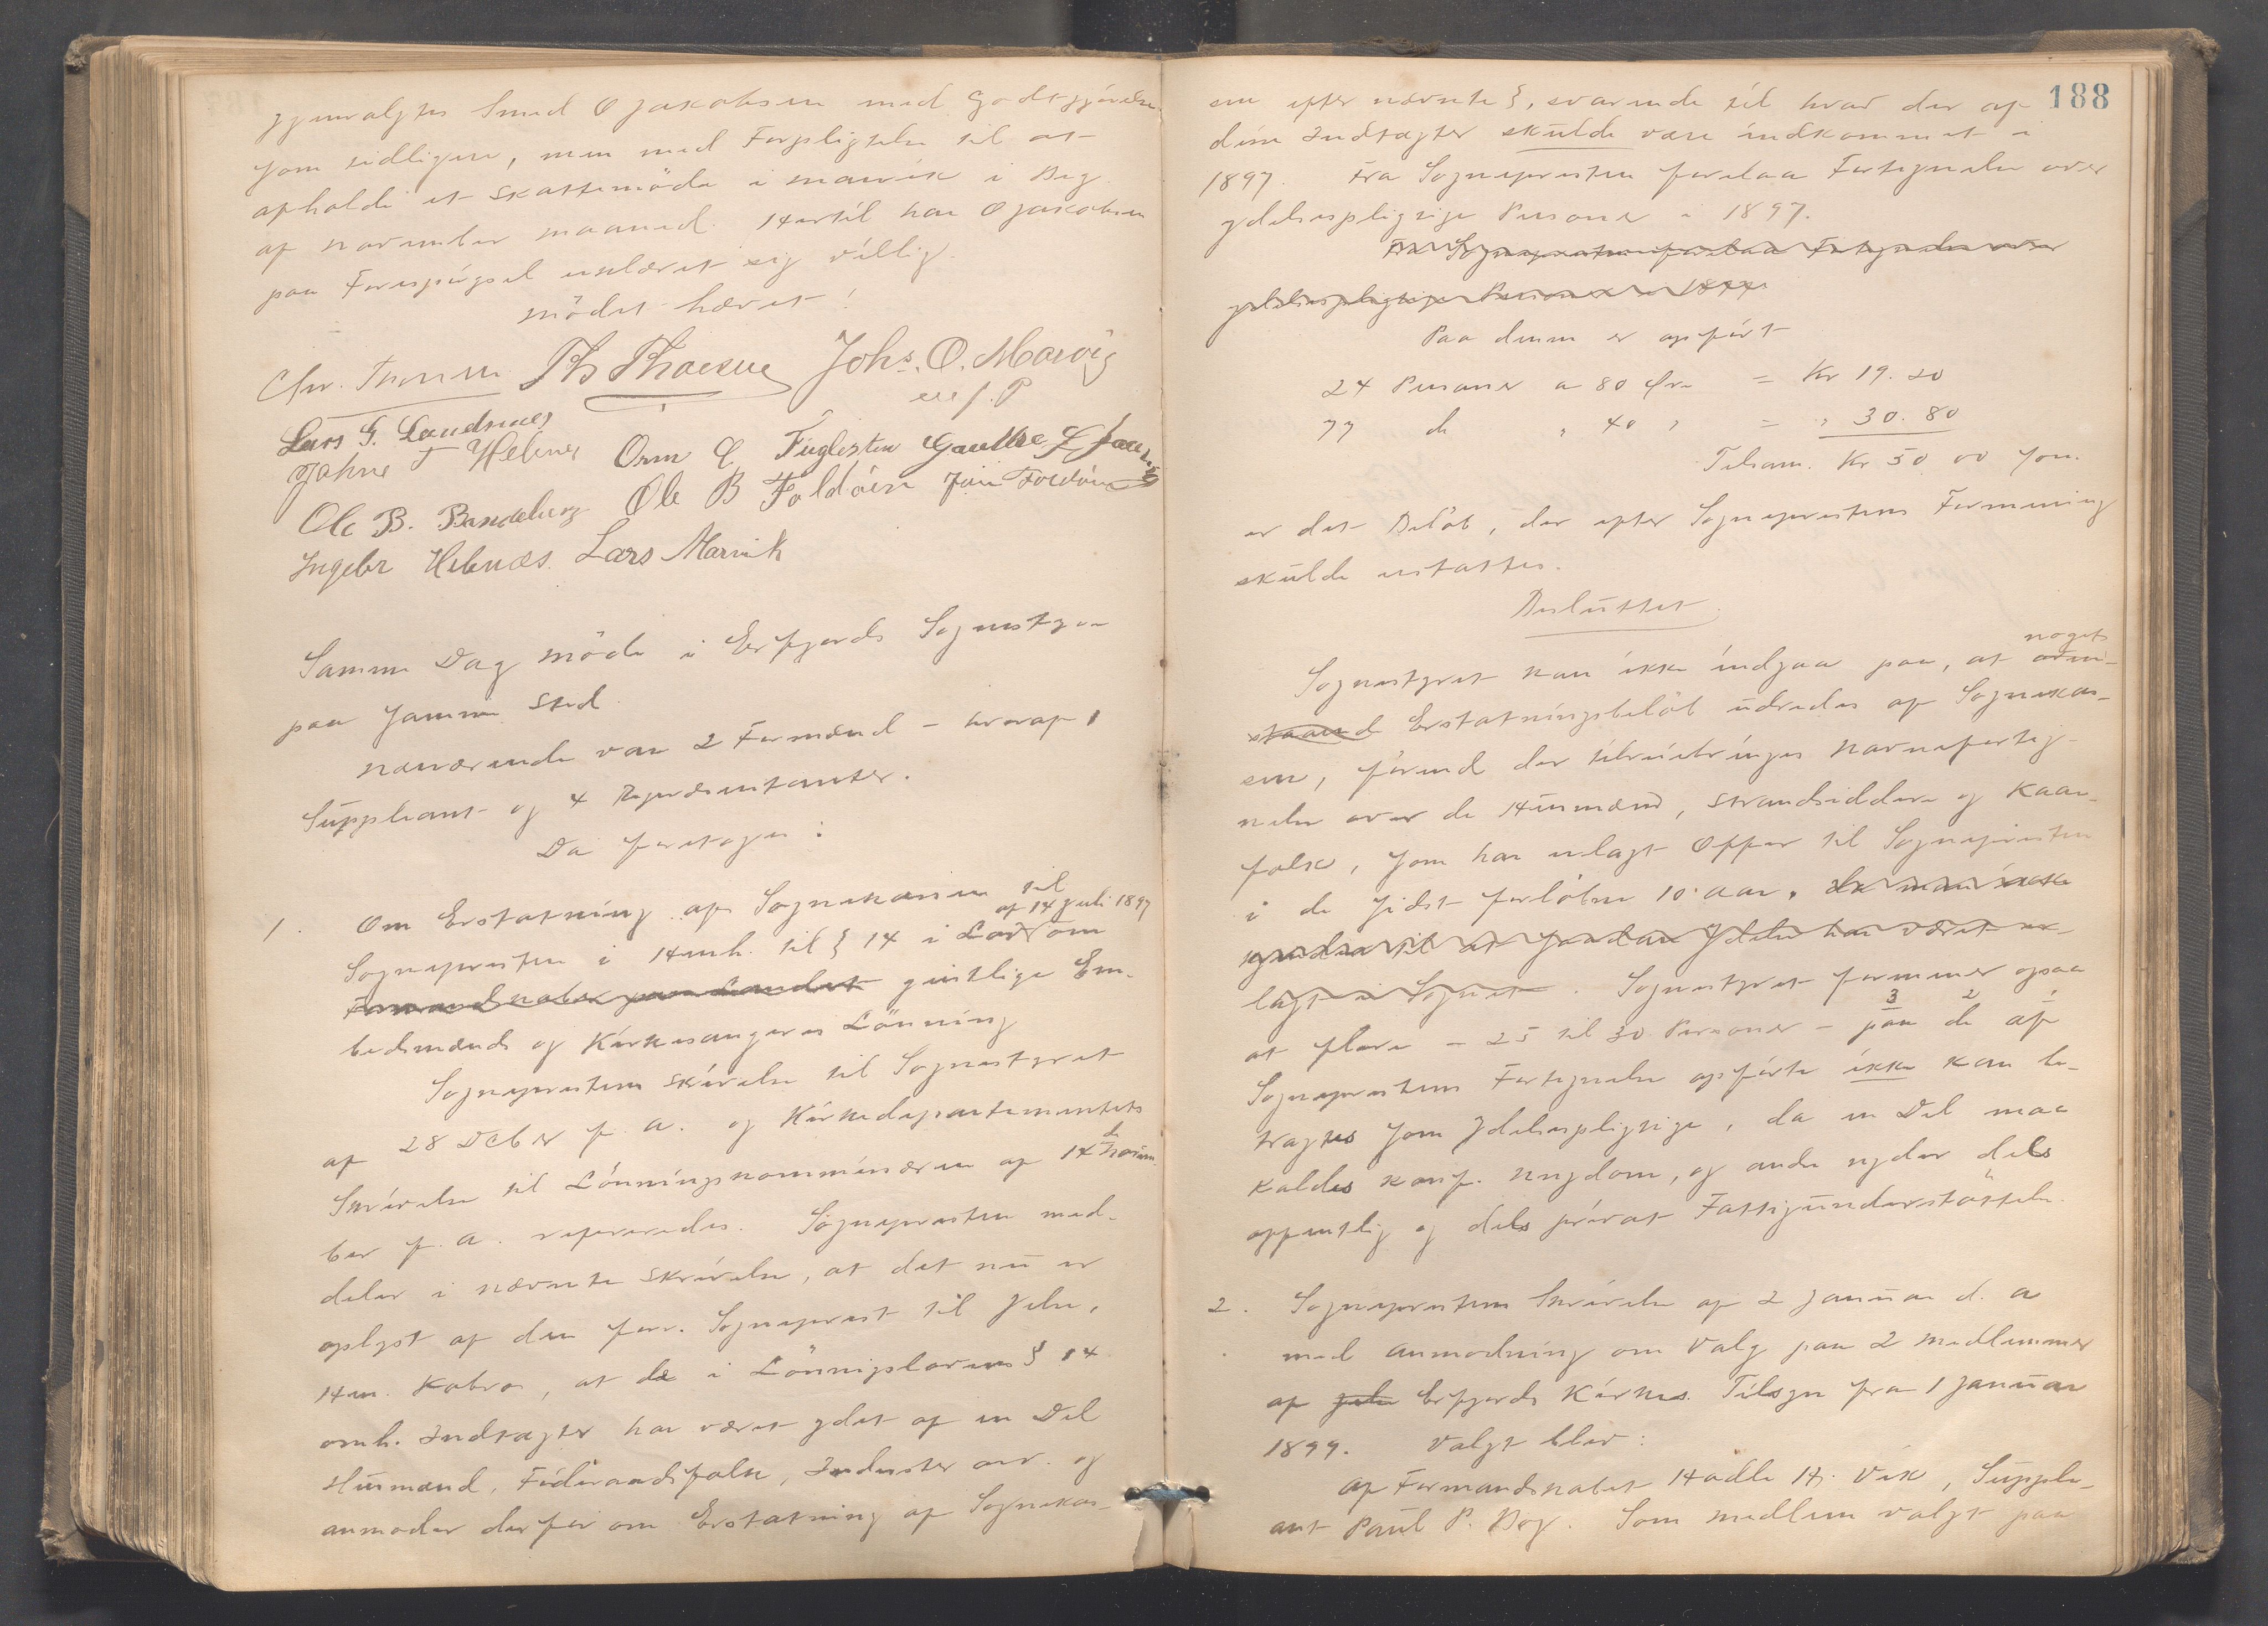 gjenvalgtes Smed O Jakobsen med Godtgjørelse
som tidligere, men med Forpligtelse til at
afholde et Skattemöde i Marvik i Beg.
af November maaned. Hertil har O Jakobsen
paa Forespørgsel erklæret sig villig.
Mödet hævet!
Chr. Thorsen Th Thorsen Johs. O. Marvig
Lars G. Landsnes
Johne T Hebnes Orm E Fuglesten
Ole B. Ole B Foldöen Jon Foldöen
Ingebr Hebnæs. Lars Marvik
Samme Dag möde i Erfjords Sognestyre
paa samme Sted
Nærværende var 2 Formænd - hvoraf 1
Suppleant og 4 Repræsentanter.
Da foretoges:
1. Om Erstatning af Sognekassen til
af 14 Juli 1897
Sognepresten i Henh. til § 14 i Lov om
Formandskaber paa Landet geistlige Em-
bedsmænds og Kirkesangeres Lönning
Sogneprestens Skrivelse til Sognestyret
af 28 Dcbr f. A. og Kirkedepartementets
Skrivelse til Lönningskommissæren af 14de Novem-
ber f. A. refereredes. Sognepresten med-
deler i nævnte Skrivelse, at det nu er
oplyst af den forr. Sogneprest til Jelse,
Hr. Kobro, at de i Lönnigslovens § 14
omh. Indtægter har været ydet af en Del
Husmænd, Föderaadsfolk, Inderster osv. og
anmoder derfor om Erstatning af Sognekas-
188
sen efter nævnte §, svarende til hvad der af
disse Indtægter skulde være indkommet i
1897. Fra Sognepresten forelaa Fortegnelse over
ydelsespligtige Personer i 1897.
Fra Sognepresten forelaa Fortegnelse over
ydelsespligtige Personer i 1897.
Paa denne er opført
24 Personer a 80 Øre = Kr 19.20
77 do " 40 " = " 30.80
Tilsam. Kr 50 00 som
er det Beløb, der efter Sogneprestens Formening
skulde erstattes.
Besluttet
Sognestyret kan ikke indgaa paa, at noget
staaende Erstatningsbelöb udredes af Sognekas-
sen, förend der tilveiebringes Navneforteg-
nelse over de Husmænd, Strandsiddere og Kaar-
folk, som har erlagt Offer til Sognepresten
i de sidst forlöbne 10 Aar. da man ikke
kjender til at saadan Ydelse har været er-
lagt i Sognet. Sognestyret formener ogsaa
3 2 1
at flere - 25 til 30 Personer - paa de af
Sogneprestens Fortegnelse opförte ikke kan be-
tragtes som Ydelsespligtige, da en Del maa
kaldes konf. Ungdom, og andre nyder dels
offentlig og dels privat Fattigunderstöttelse.
2. Sogneprestens Skrivelse af 2 Januar d. A
med Anmodning om Valg paa 2 Medlemmer
af Jelse Erfjords Kirkes Tilsyn fra 1 Januar
1899. Valgt blev:
Af Formandskabet Hadle H. Vik, Supple-
ant Paul P. Bog. Som Medlem valgt paa